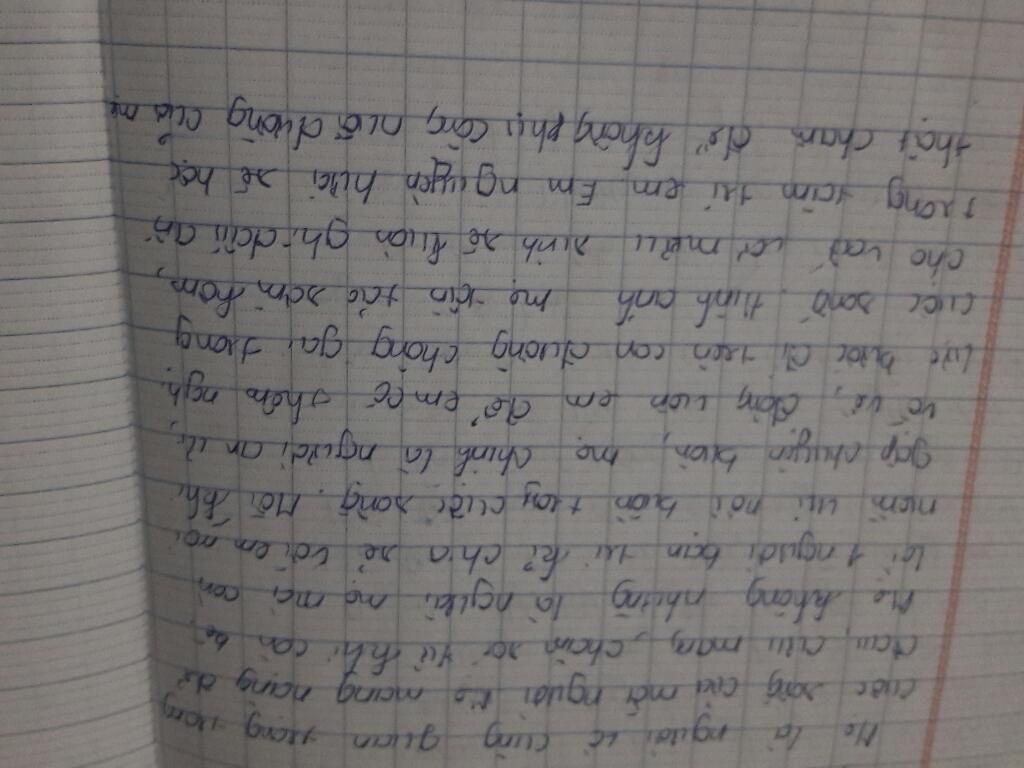 Mẹ là người vô cùng quan trọng trong
cuộc sống của mỗi người. Mẹ mang nặng đẻ
đau, cưu mang, chăm sóc từ khi còn bé.
Mẹ không những là người mẹ mà còn
là 1 người bạn tri kỉ chia sẻ với em mọi
niềm vui nỗi buồn trong cuộc sống. Mỗi khi
gặp chuyện buồn, mẹ chính là người an ủi,
vỗ về, động viên em để em có thêm nghị
lực bước đi trên con đường chông gai trong
cuộc sống. Hình ảnh mẹ tần tảo sớm hôm,
cho vất vả mưu sinh sẽ luôn ghi dấu ấn
trong tâm trí em. Em nguyện hứa sẽ học
thật chăm để không phụ công nuôi dưỡng của mẹ